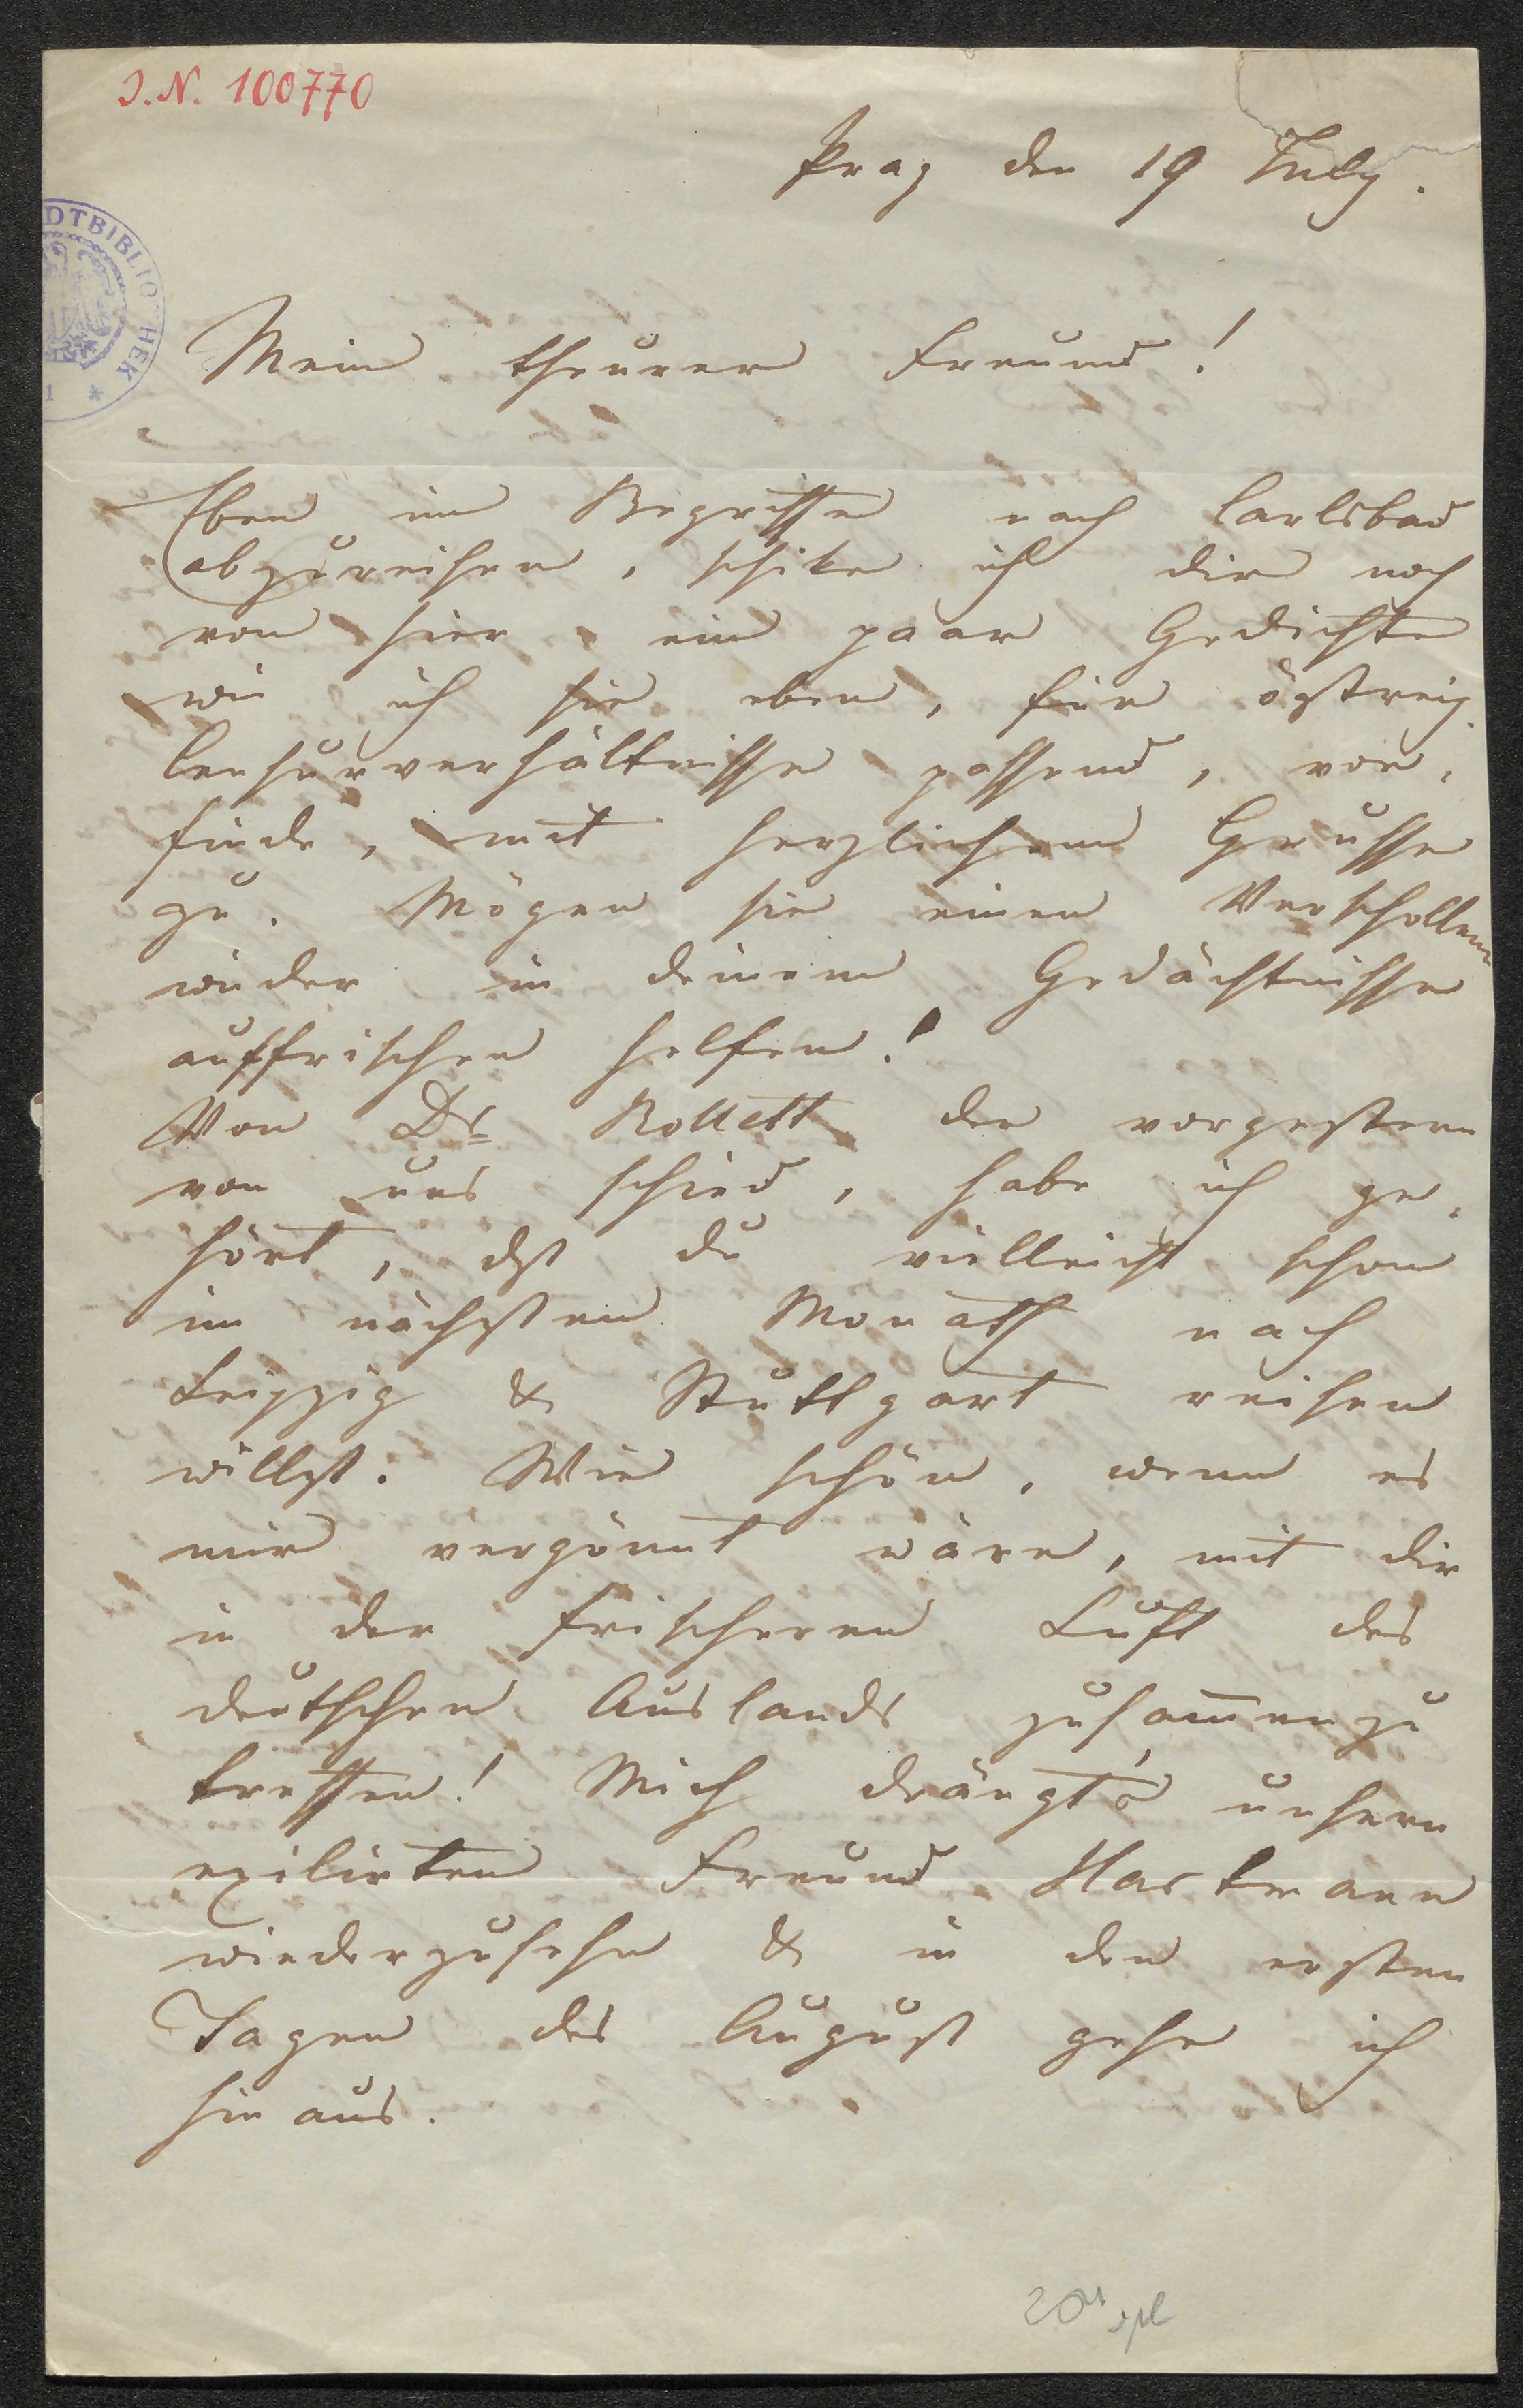 I.N. 100770
Prag den 19 July.
DTBIBLIOTHEK
1 *
Mein theurer Freund!
Eben im Begriffe nach Carlsbad
abzureisen, schike ich dir noch
von hier ein paar Gedichte
wie ich sie eben, für östreich.
Censurverhältnisse passend, vor-
finde, mit herzlichem Gruße
zu. Mögen sie einen Verschollenen
wieder in deinem Gedächtnisse
auffrischen helfen!
Von Dr Rollett der vorgestern
von uns schied, habe ich ge-
hört, dß du vielleicht schon
im nächsten Monath nach
Leipzig & Stuttgart reisen
willst. Wie schön, wenn es
mir vergönnt wäre, mit dir
in der frischeren Luft des
deutschen Auslands zusam̅enzu
treffen! Mich drängt's unsern
exilirten Freund Hartmann
wiederzusehn & in den ersten
Tagen des August gehe ich
hinaus.